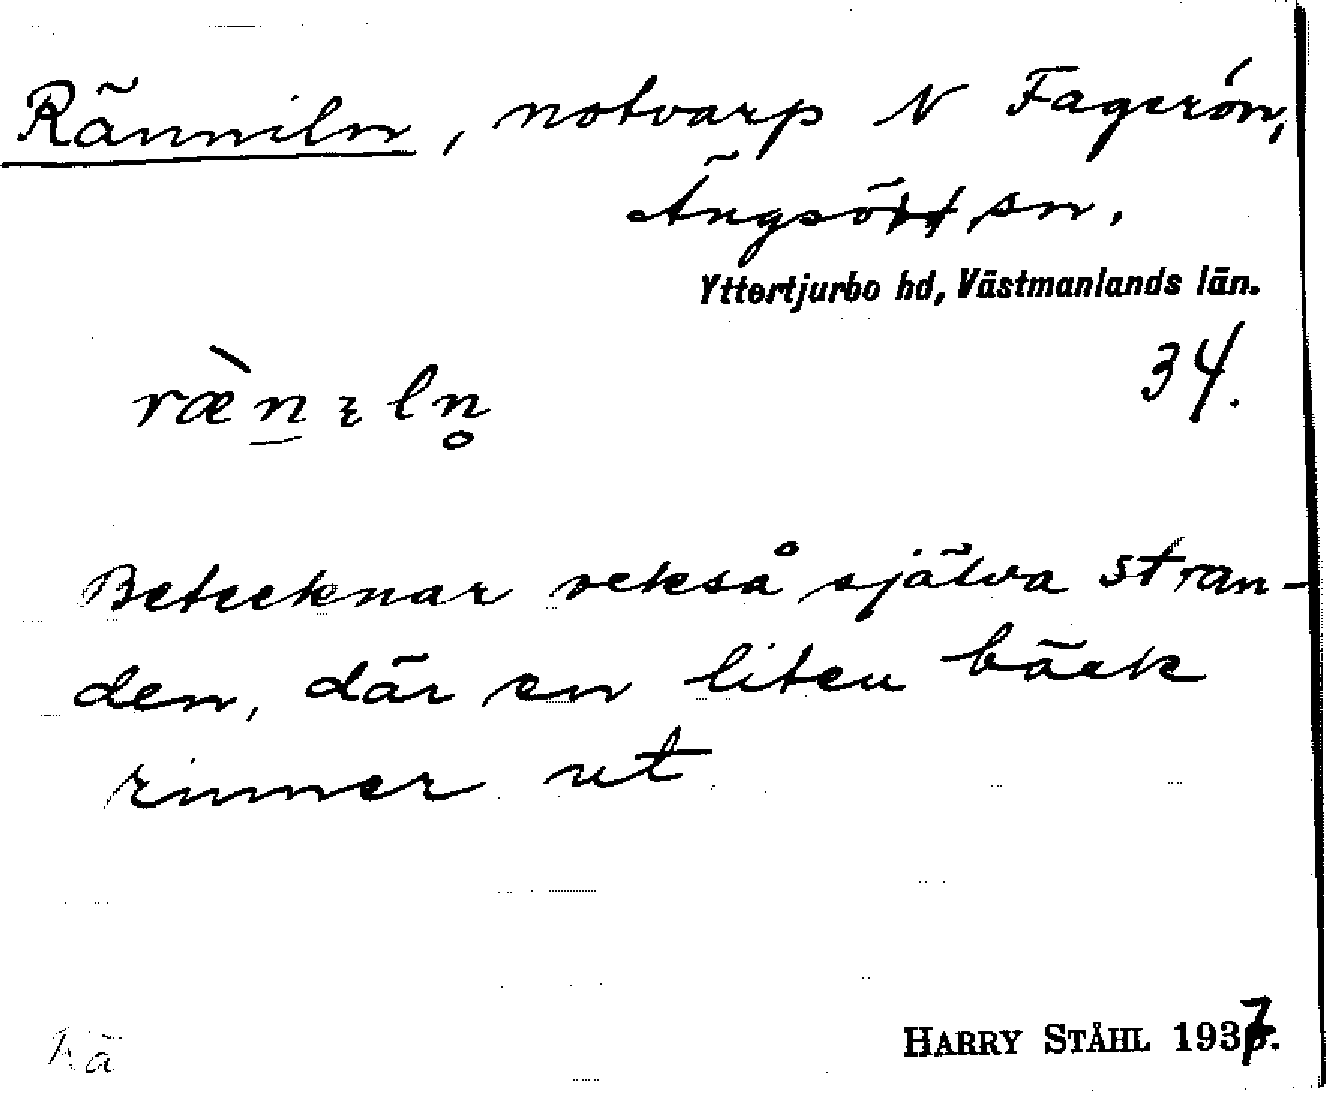 Ränniln, notvarp N Fagerön,
Ängsö sn.
Yttertjurbo hd, Västmanlands län.
34.
ræ̀nɩln̥
Betecknar också själva stran-
den, där en liten bäck
rinner ut
HARRY STÅHL 1937.
Rä